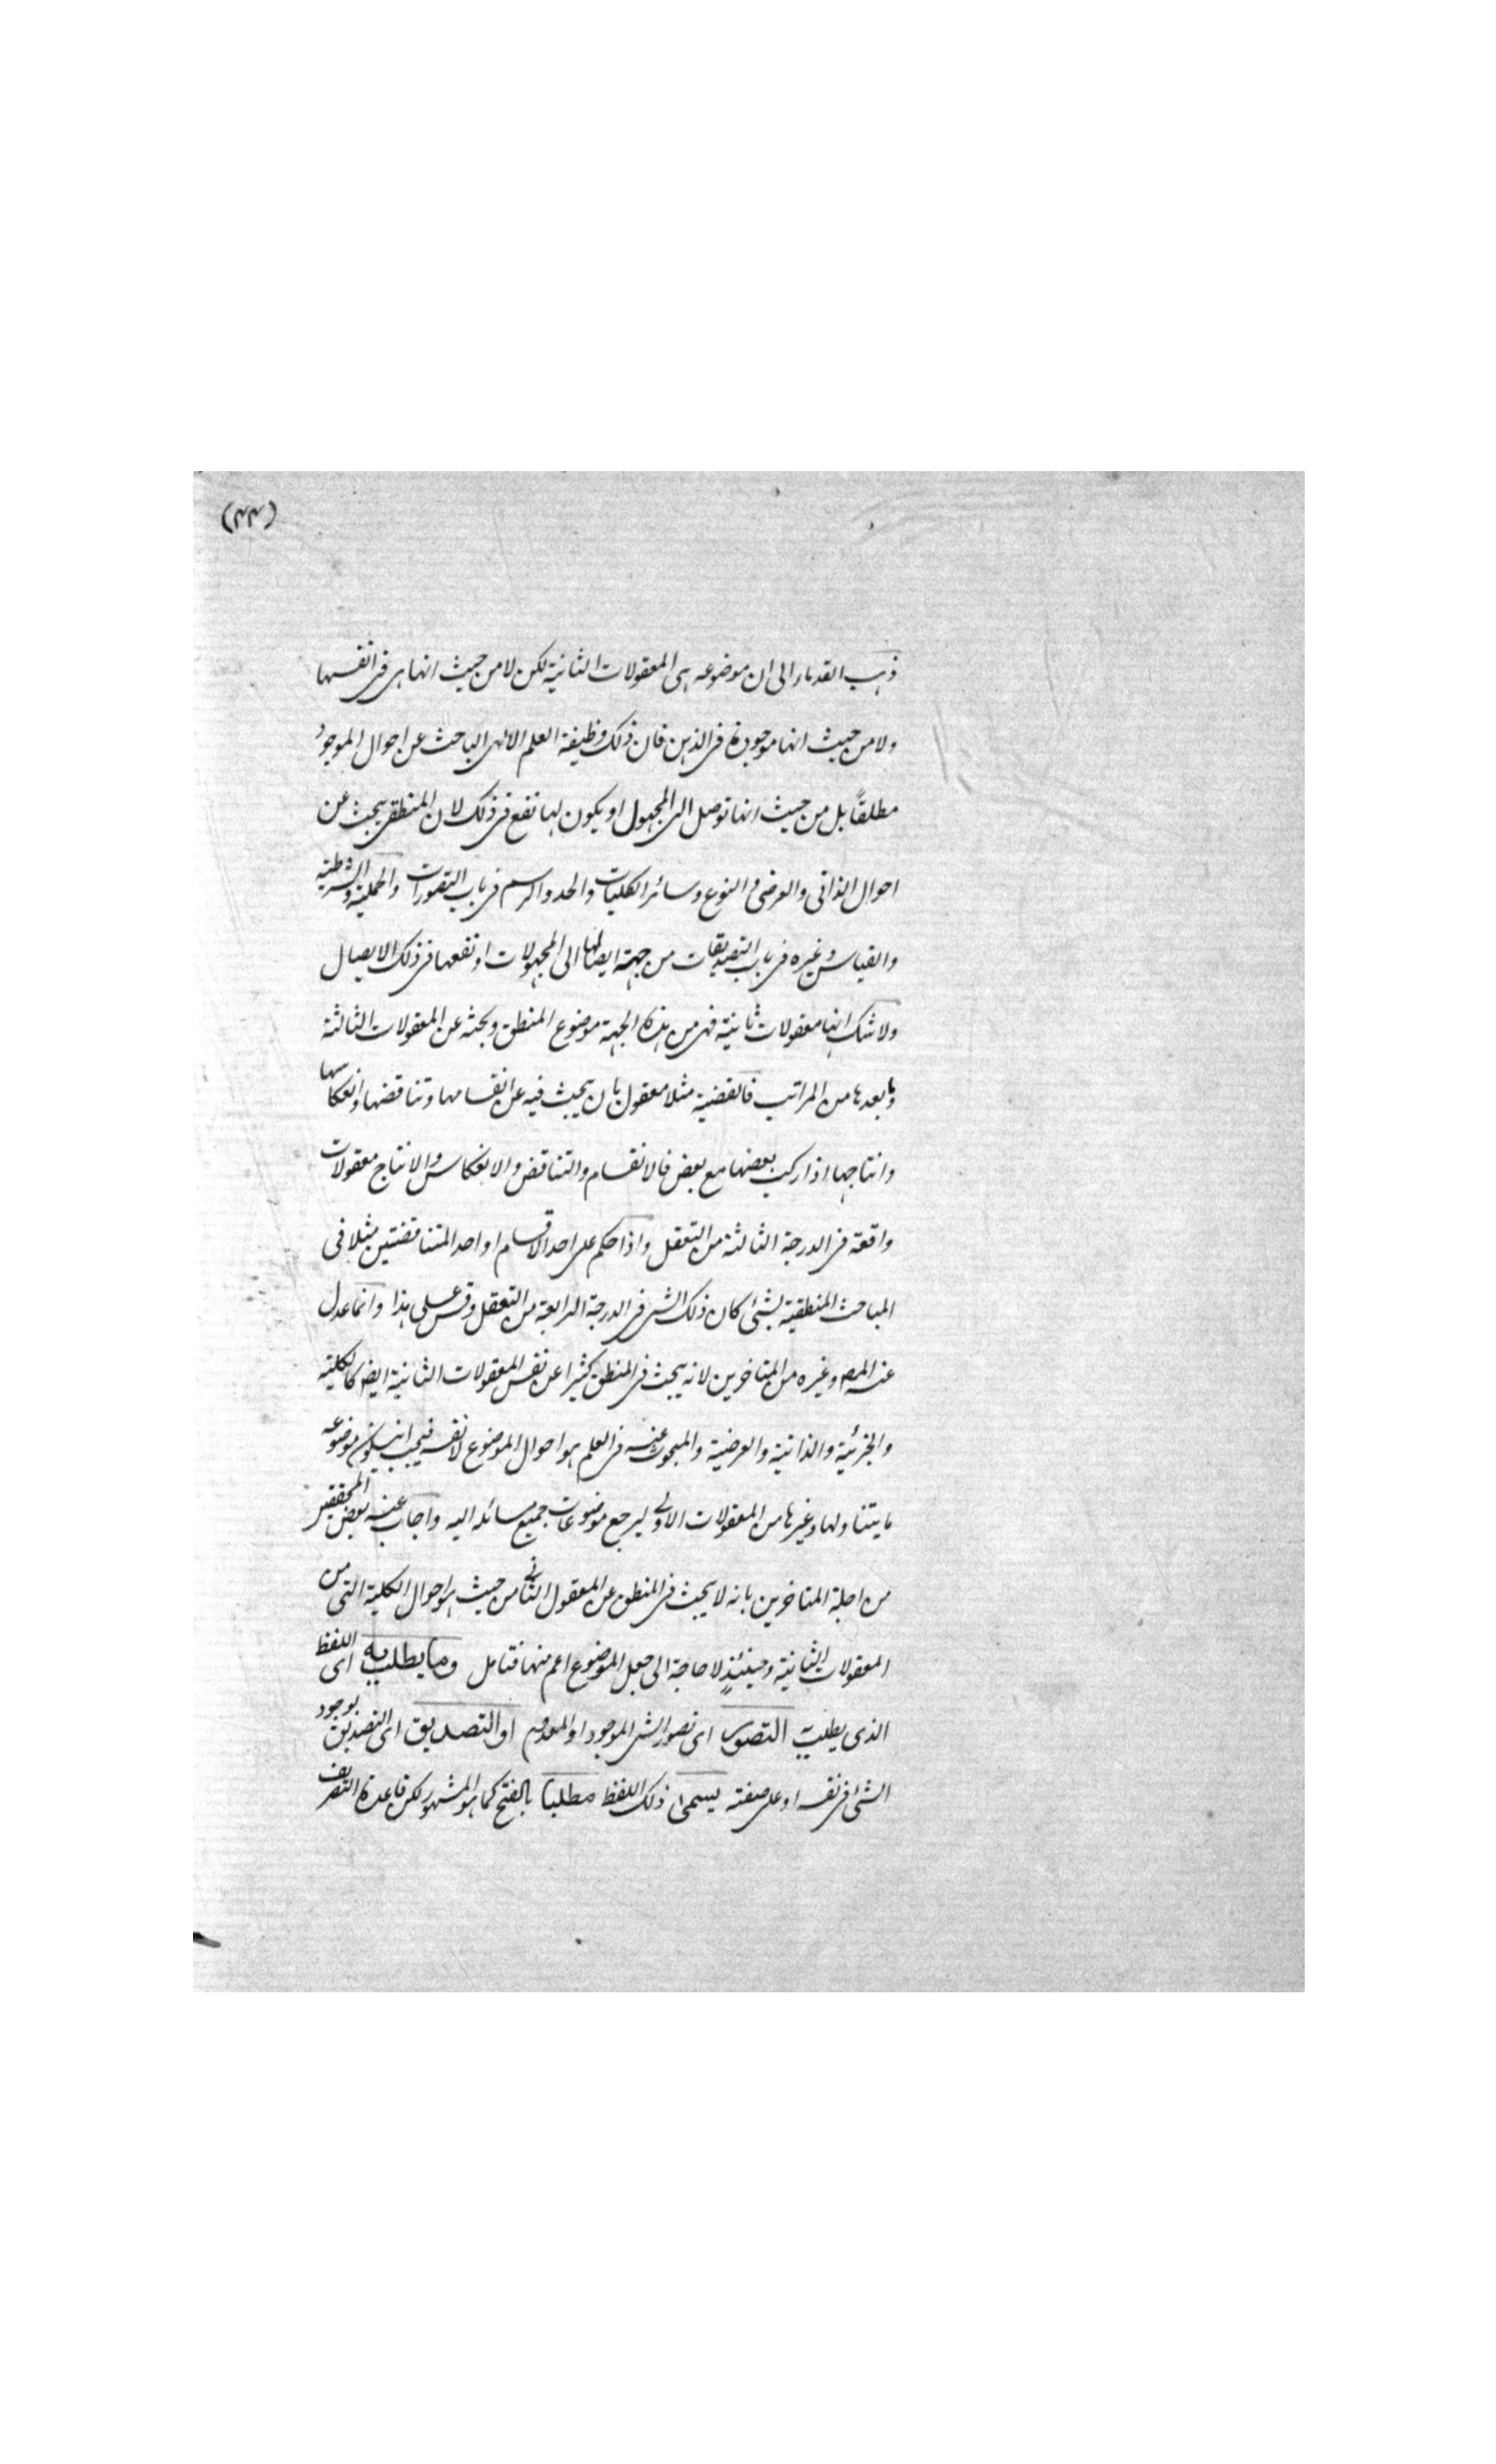 (٤٤)
ذهب القدماء الى ان موضوعه هى المعقولات الثانية لكن لا من حيث انها هى فى انفسها
ولا من حيث انها موجودة فى الذهن فان ذلك وظيفة العلم الالهى الباحث عن احوال الموجود
مطلقاً بل من حيث انها توصل الى المجهول او يكون لها نفع فى ذلك لان المنطقى يبحث عن
احوال الذاتى والعرضى والنوع وسائر الكليات والحد والرسم فى باب التصورات والحملية والشرطية
والقياس وغيره فى باب التصديقات من جهة ايصالها الى المجهولات او نفعها فى ذلك الايصال
ولا شك انها معقولات ثانية فهى من هذه الجهة موضوع المنطق وبحثه عن المعقولات الثالثة
وما بعدها من المراتب فالقضية مثلا معقول ثان يبحث فيه عن انقسامها وتناقضها وانعكاسها
وانتاجها اذا ركب بعضها مع بعض فالانقسام والتناقض والانعكاس والانتاج معقولات
واقعة فى الدرجة الثالثة من التعقل واذا حكم على احد الاقسام او احد المتناقضتين مثلا فى
المباحث المنطقية بشئ كان ذلك الشئ فى الدرجة الرابعة من التعقل وقس على هذا وانما عدل
عنه المصه وغيره من المتاخرين لانه يبحث فى المنطق كثيرا عن نفس المعقولات الثانية ايضا كالكلية
والجزئية والذاتية والعرضية والمبحوث عنه فى العلم هو احوال الموضوع لا نفسه فيجب ان يكون موضوعه
ما يتناولها وغيرها من المعقولات الاولى ليرجع موضوعات جميع مسائله اليه واجاب عنه بعض المحققين
من اجلة المتاخرين بانه لا يبحث فى المنطق عن المعقول الثانى من حيث هو احوال الكلية التى من
المعقولات الثانية وحينئذٍ لا حاجة الى جعل الموضوع اعم منها فتامل وما يطلب به اى اللفظ
الذى يطلب به التصور اى تصور الشئ الموجود او المعدوم او التصديق اى التصديق بوجود
الشئ فى نفسه او على صفته يسمى ذلك اللفظ مطلبا بالفتح كما هو المشهور لكن قاعدة التصريف